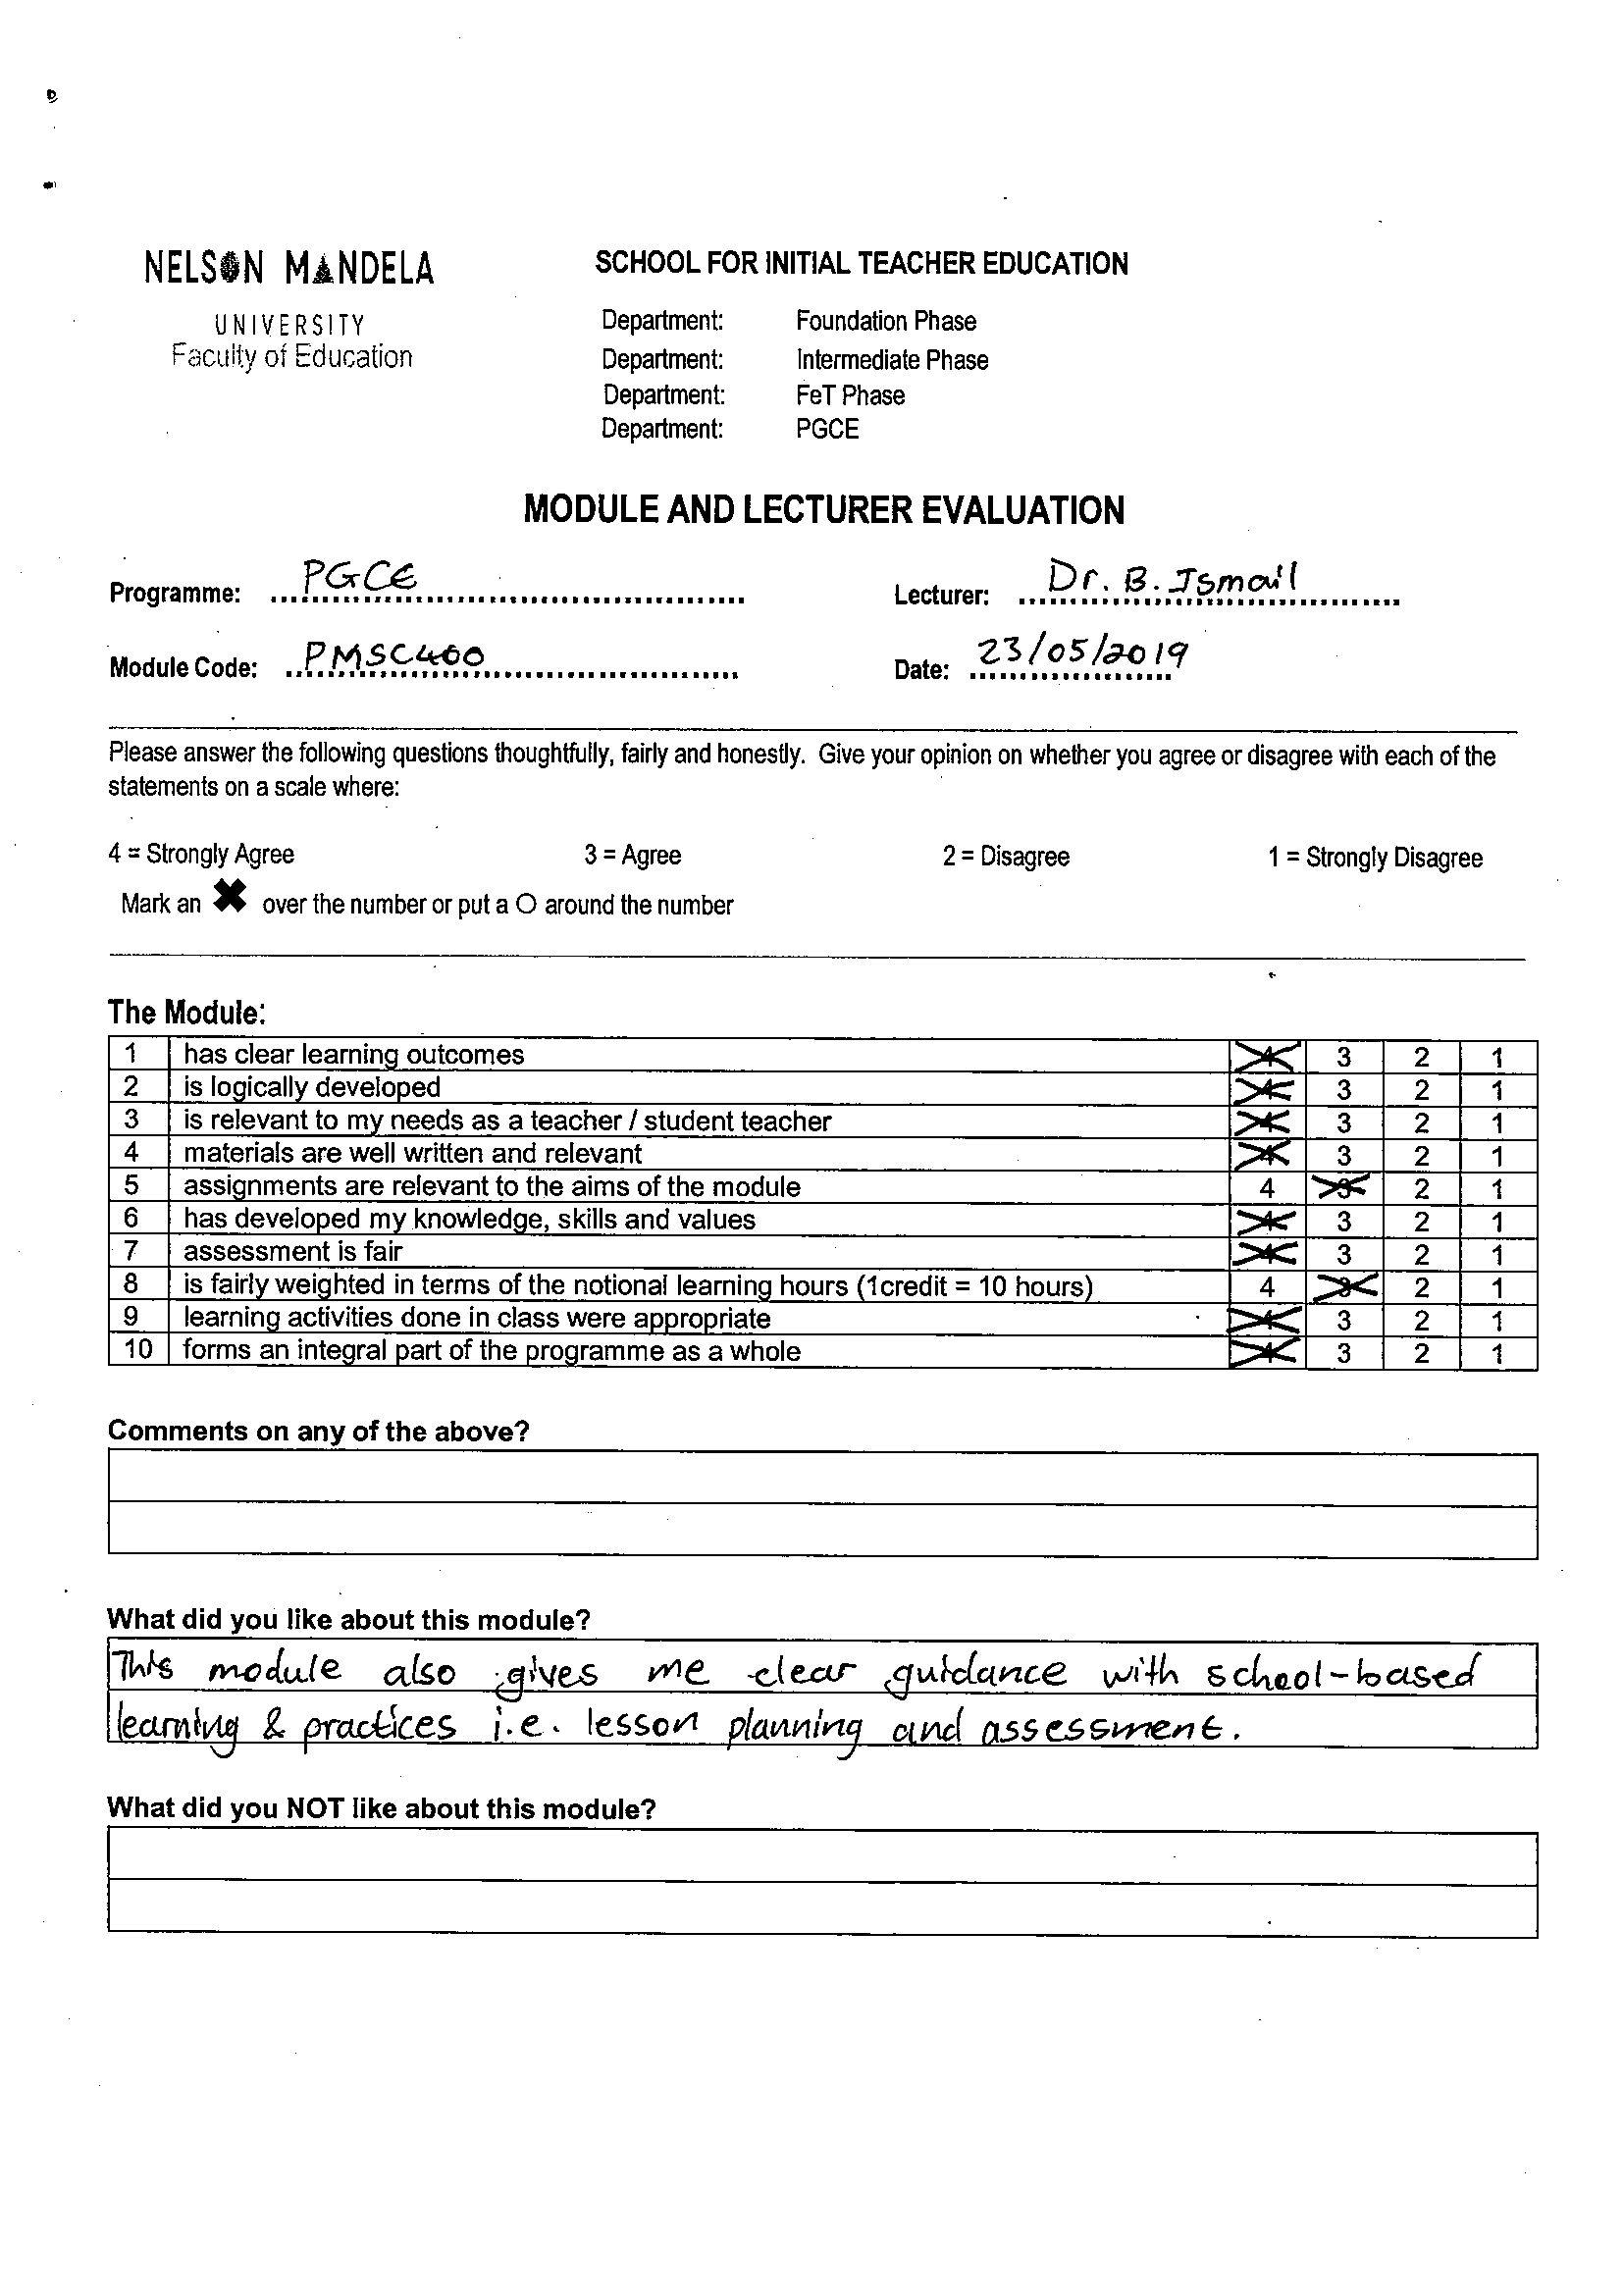 NELSON MANDELA
UNIVERSITY
Faculty of Education
SCHOOL FOR INITIAL TEACHER EDUCATION
Department: Foundation Phase
Department: Intermediate Phase
Department: FeT Phase
Department: PGCE
MODULE AND LECTURER EVALUATION
Programme: PGCE Lecturer: Dr. B. Ismail
Module Code: PMSC400 Date: 23/05/2019
Please answer the following questions thoughtfully, fairly and honestly. Give your opinion on whether you agree or disagree with each of the
statements on a scale where:
4 = Strongly Agree 3 = Agree 2 = Disagree 1 = Strongly Disagree
Mark an ✖ over the number or put a O around the number
The Module:
1 has clear learning outcomes 4 3 2 1
2 is logically developed 4 3 2 1
3 is relevant to my needs as a teacher / student teacher 4 3 2 1
4 materials are well written and relevant 4 3 2 1
5 assignments are relevant to the aims of the module 4 3 2 1
6 has developed my knowledge, skills and values 4 3 2 1
7 assessment is fair 4 3 2 1
8 is fairly weighted in terms of the notional learning hours (1credit = 10 hours) 4 3 2 1
9 learning activities done in class were appropriate 4 3 2 1
10 forms an integral part of the programme as a whole 4 3 2 1
Comments on any of the above?
What did you like about this module?
This module also gives me clear guidance with school-based
learning & practices i.e. lesson planning and assessment.
What did you NOT like about this module?